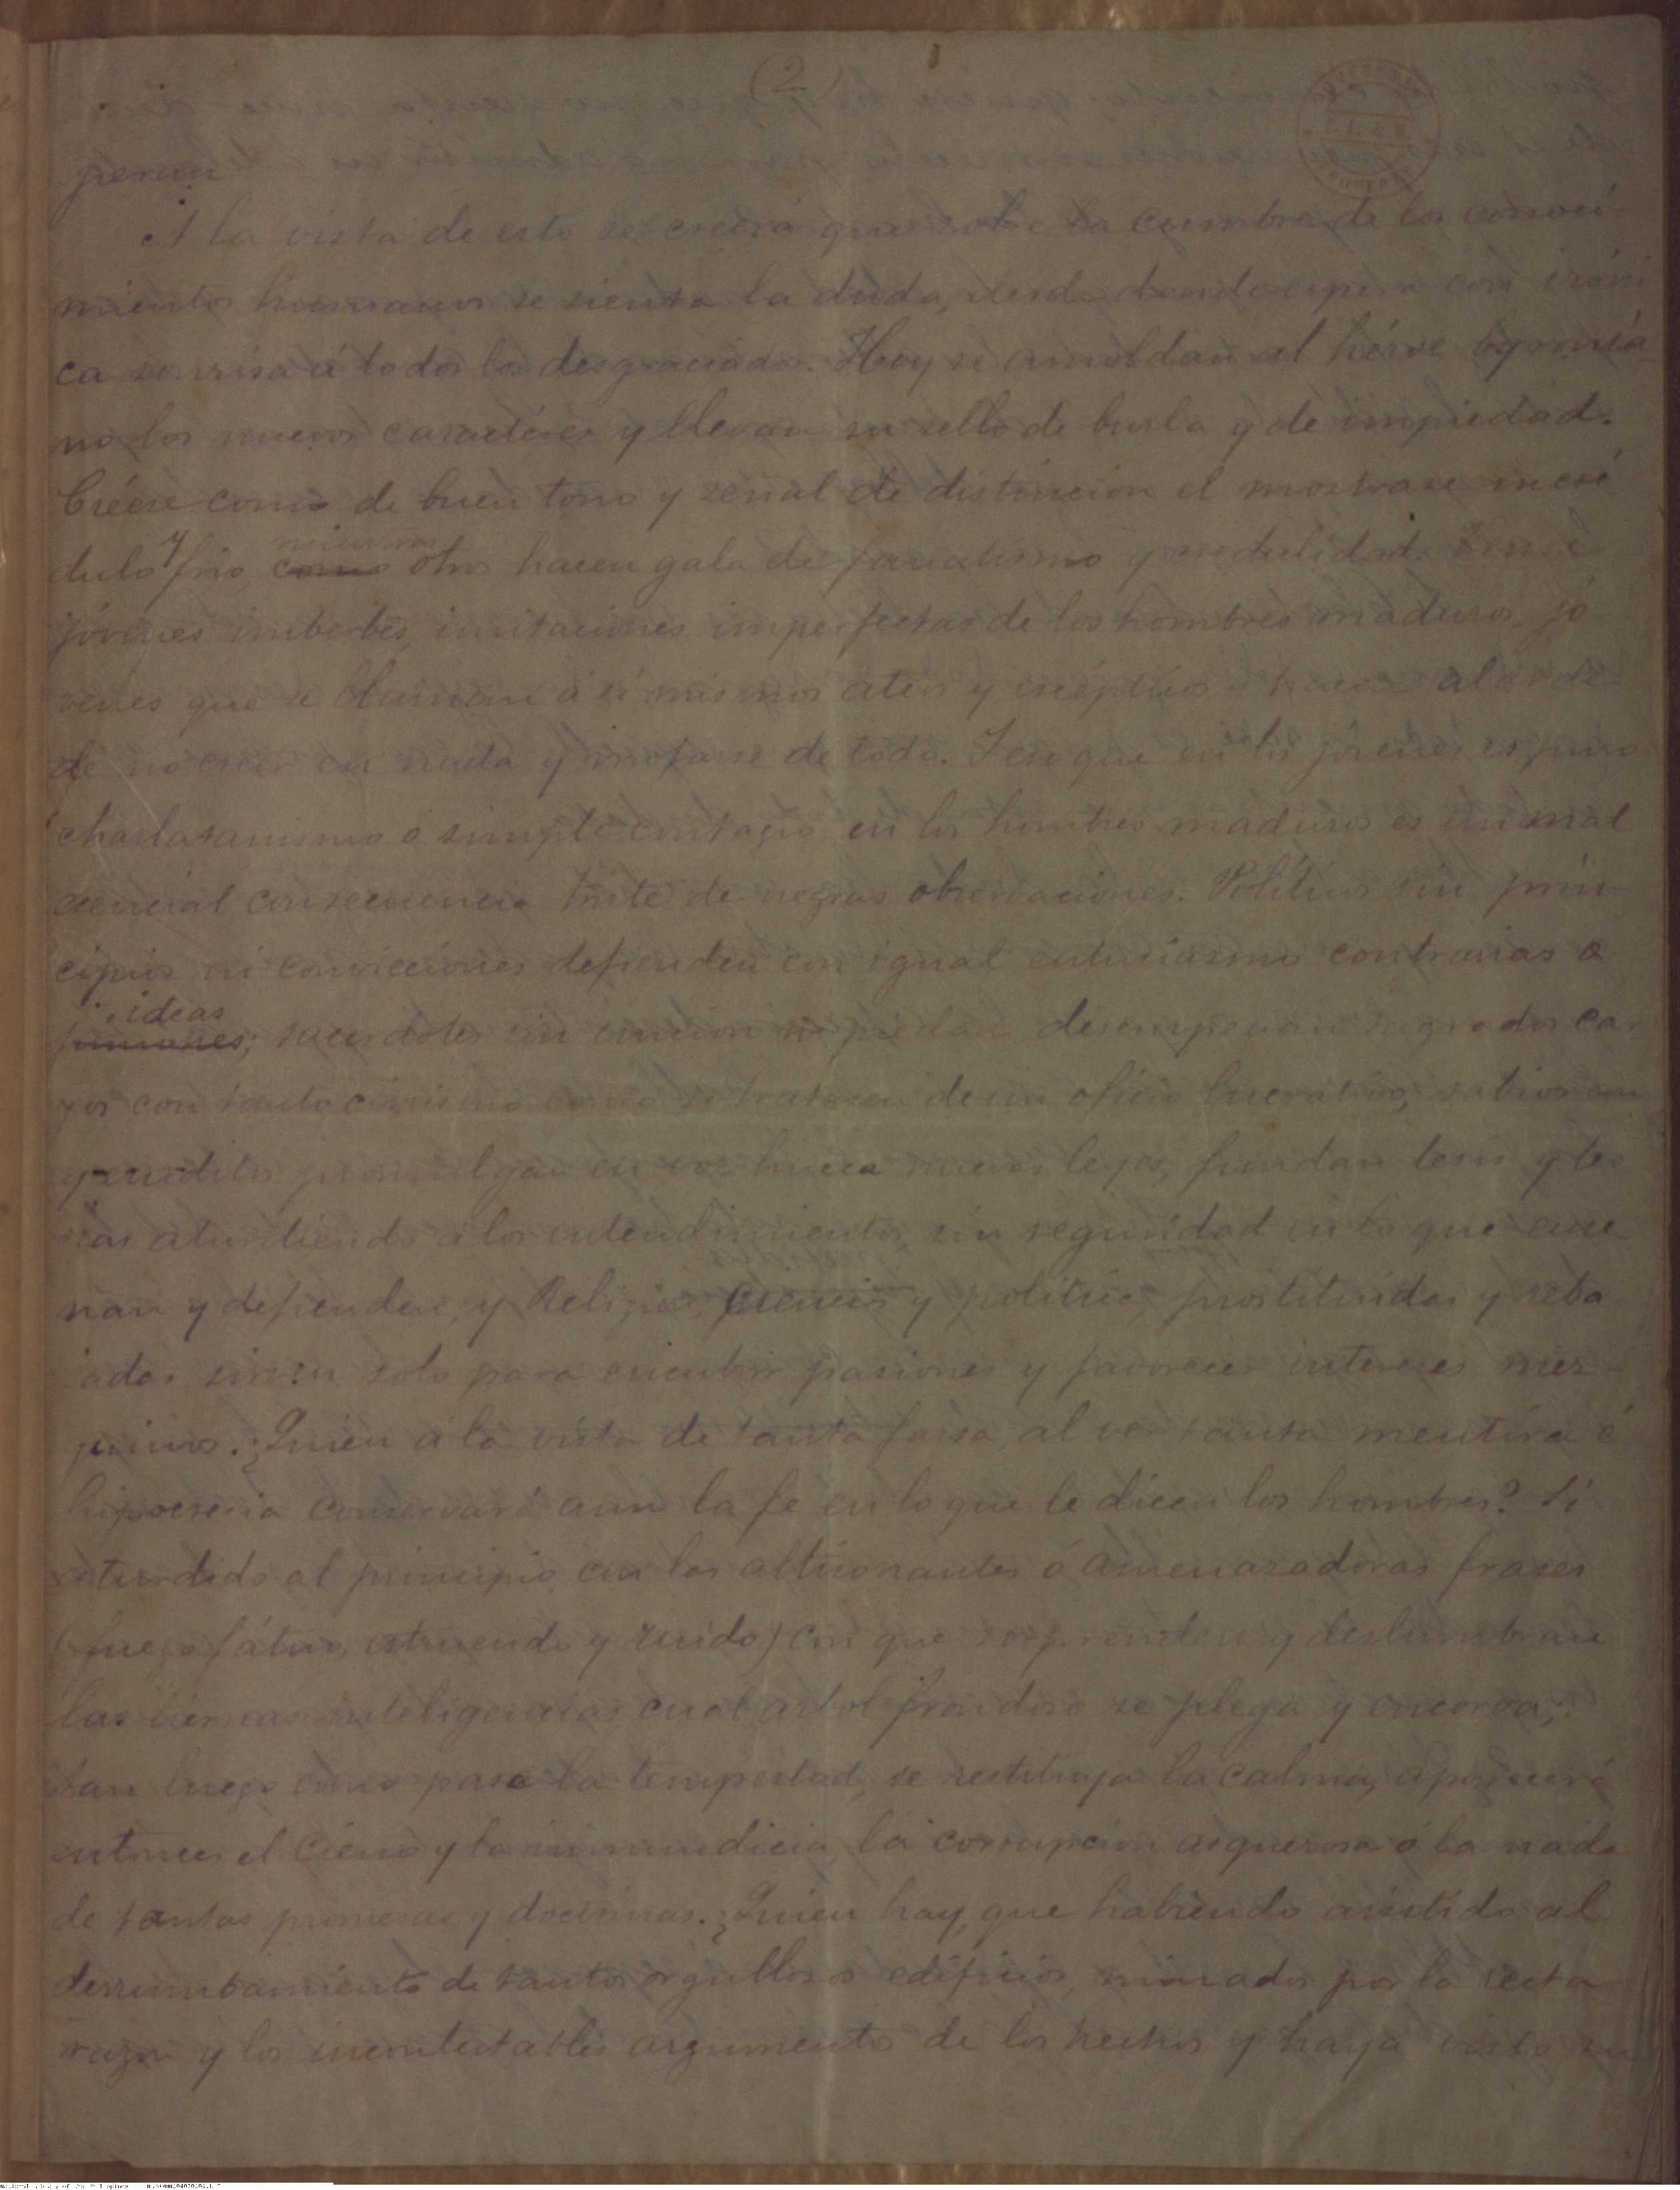 (2)
peran
A la vista de esto se creerá que sobre la cumbre de los conoci
mientos humanos se sienta la duda, desde donde espera con iróni
ca sonrisa á todos los desgraciados. Hoy se amoldan al héroe byronia
no los nuevos caractéres y llevan su sello de burla y de impiedad.
Créese como de buen tono y señal de distincion el mostrarse incré
dulo y frio, mientras como otros hacen gala de fanatismo y credulidad.
jóvenes imberbes, imitaciones imperfectas de los hombres maduros, jó
venes que se llaman á sí mismos ateos y escépticos y hacen alarde
de no creer en nada y mofarse de todo. Y eso que en los jóvenes es puro
charlatanismo ó simple contagio en los hombres maduros es un mal
esencial consecuencia triste de negras observaciones. Politicos sin prin-
cipios ni convicciones defienden con igual entusiasmo contrarias
ideas
; sacerdotes sin uncion ni piedad desempeñan sagrados car
gos con tanto cinismo como si trataran de un oficio lucrativo; sabios
y eruditos promulgan en voz hueca nuevas leyes, fundan tesis y teo
rias aturdiendo á los entendimientos sin seguridad en lo que ense
ñan y defienden, y Religion, ciencia y politica, prostituidas y reba
jadas sirven solo para encubrir pasiones y favorecer intereses mez-
quinos. ¿Quien á la vista de tanta farsa, al ver tanta mentira é
hipocresia conservará aun la fe en lo que le dicen los hombres? Si
aturdido al principio con las altisonantes ó amenazadoras frases
(fuego fátuo, estruendo y ruido) con que sorprenden y deslumbran
las tiernas inteligencias, cual arbol frondoso se plega y encorva;
tan luego como pase la tempestad, se restituya la calma, aparecerá
entonces el cieno y la inmundicia, la corrupcion asquerosa ó la nada
de tantas promesas y doctrinas. ¿Quien hay, que habiendo asistido al
derrumbamiento de tantos orgullosos edificios, minados por la recta
razon y los incontestables argumentos de los hechos y haya visto su